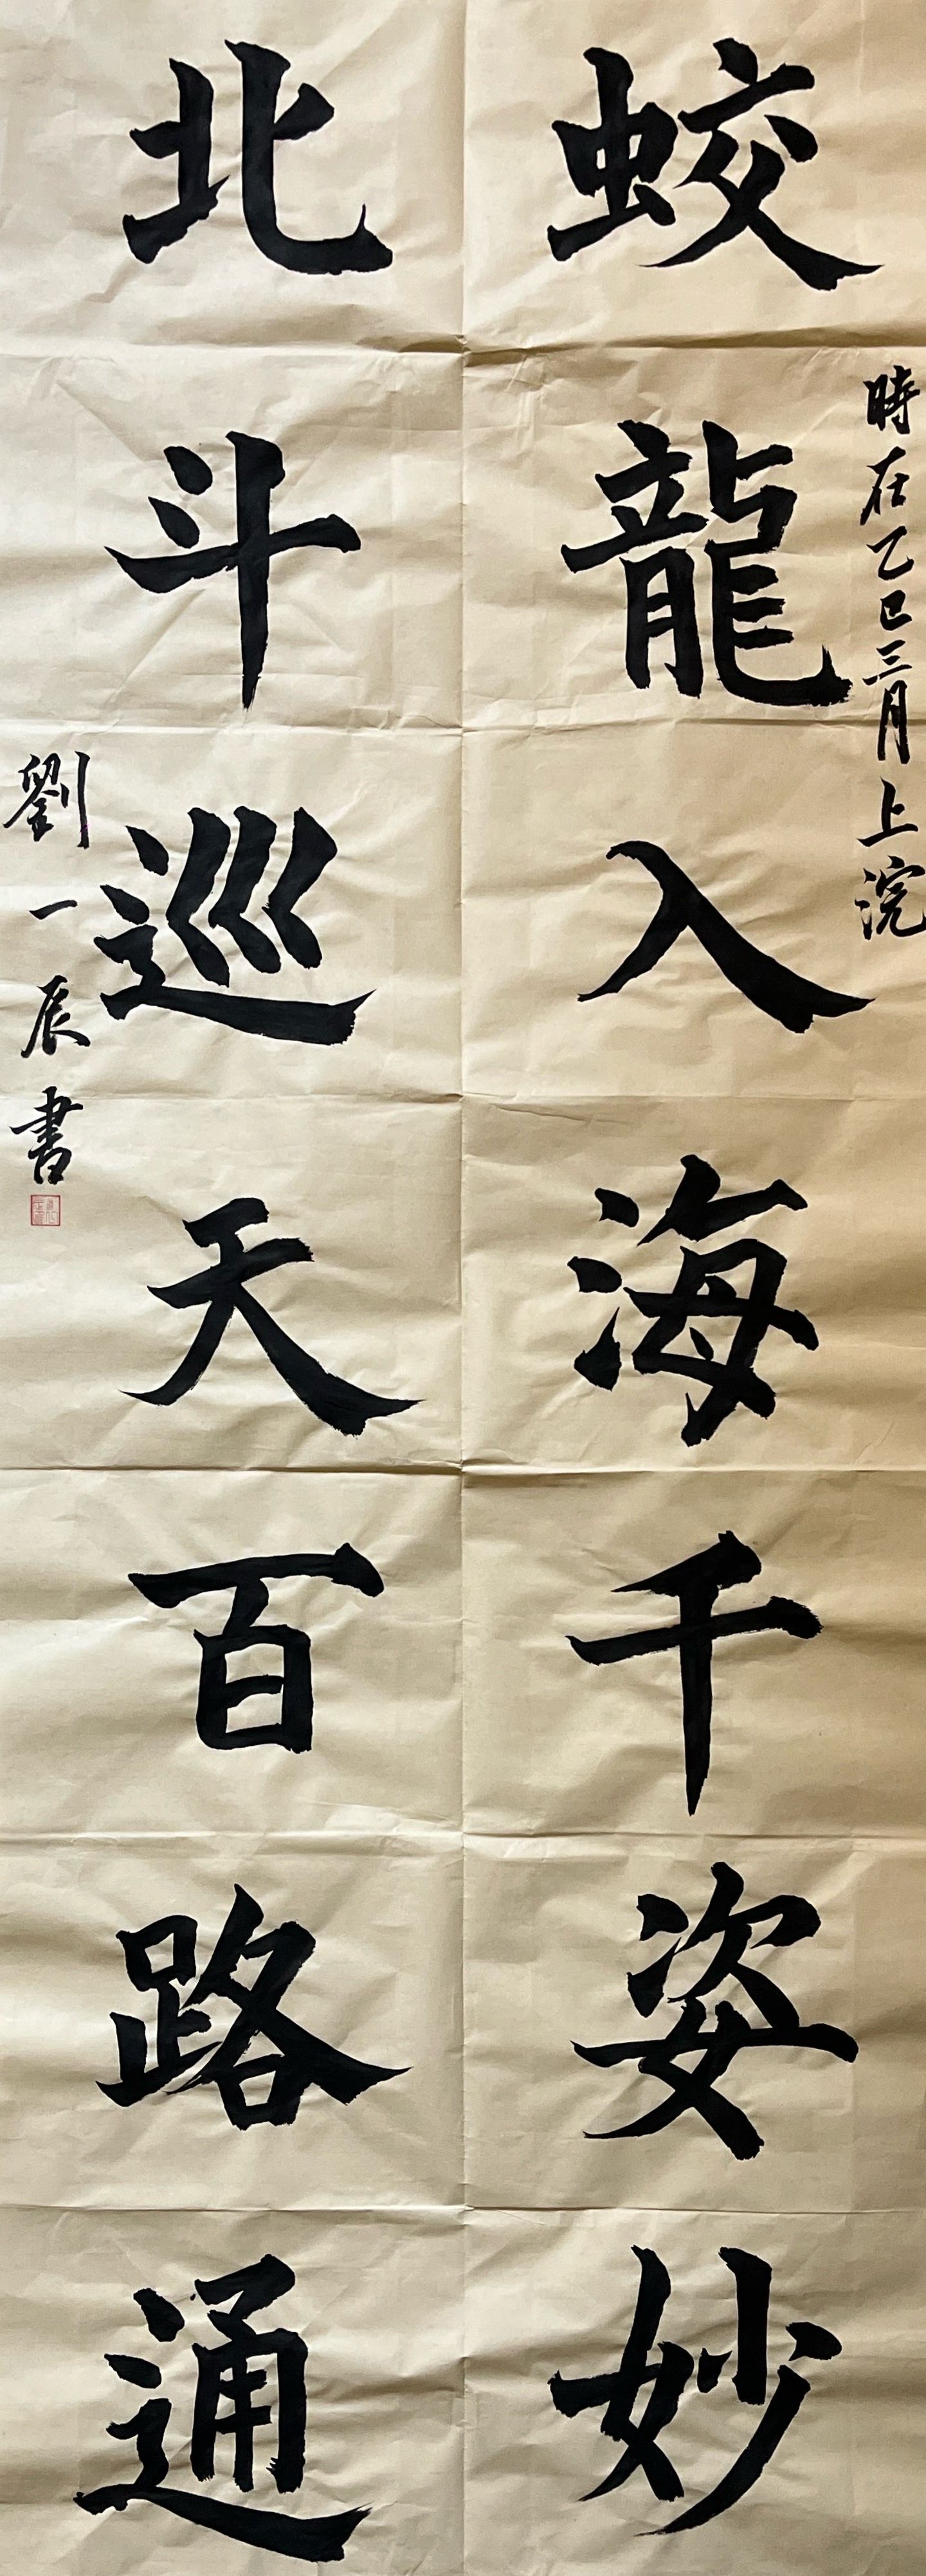 時在乙巳三月上浣
蛟龍入海千姿妙
北斗巡天百路通
劉一辰書